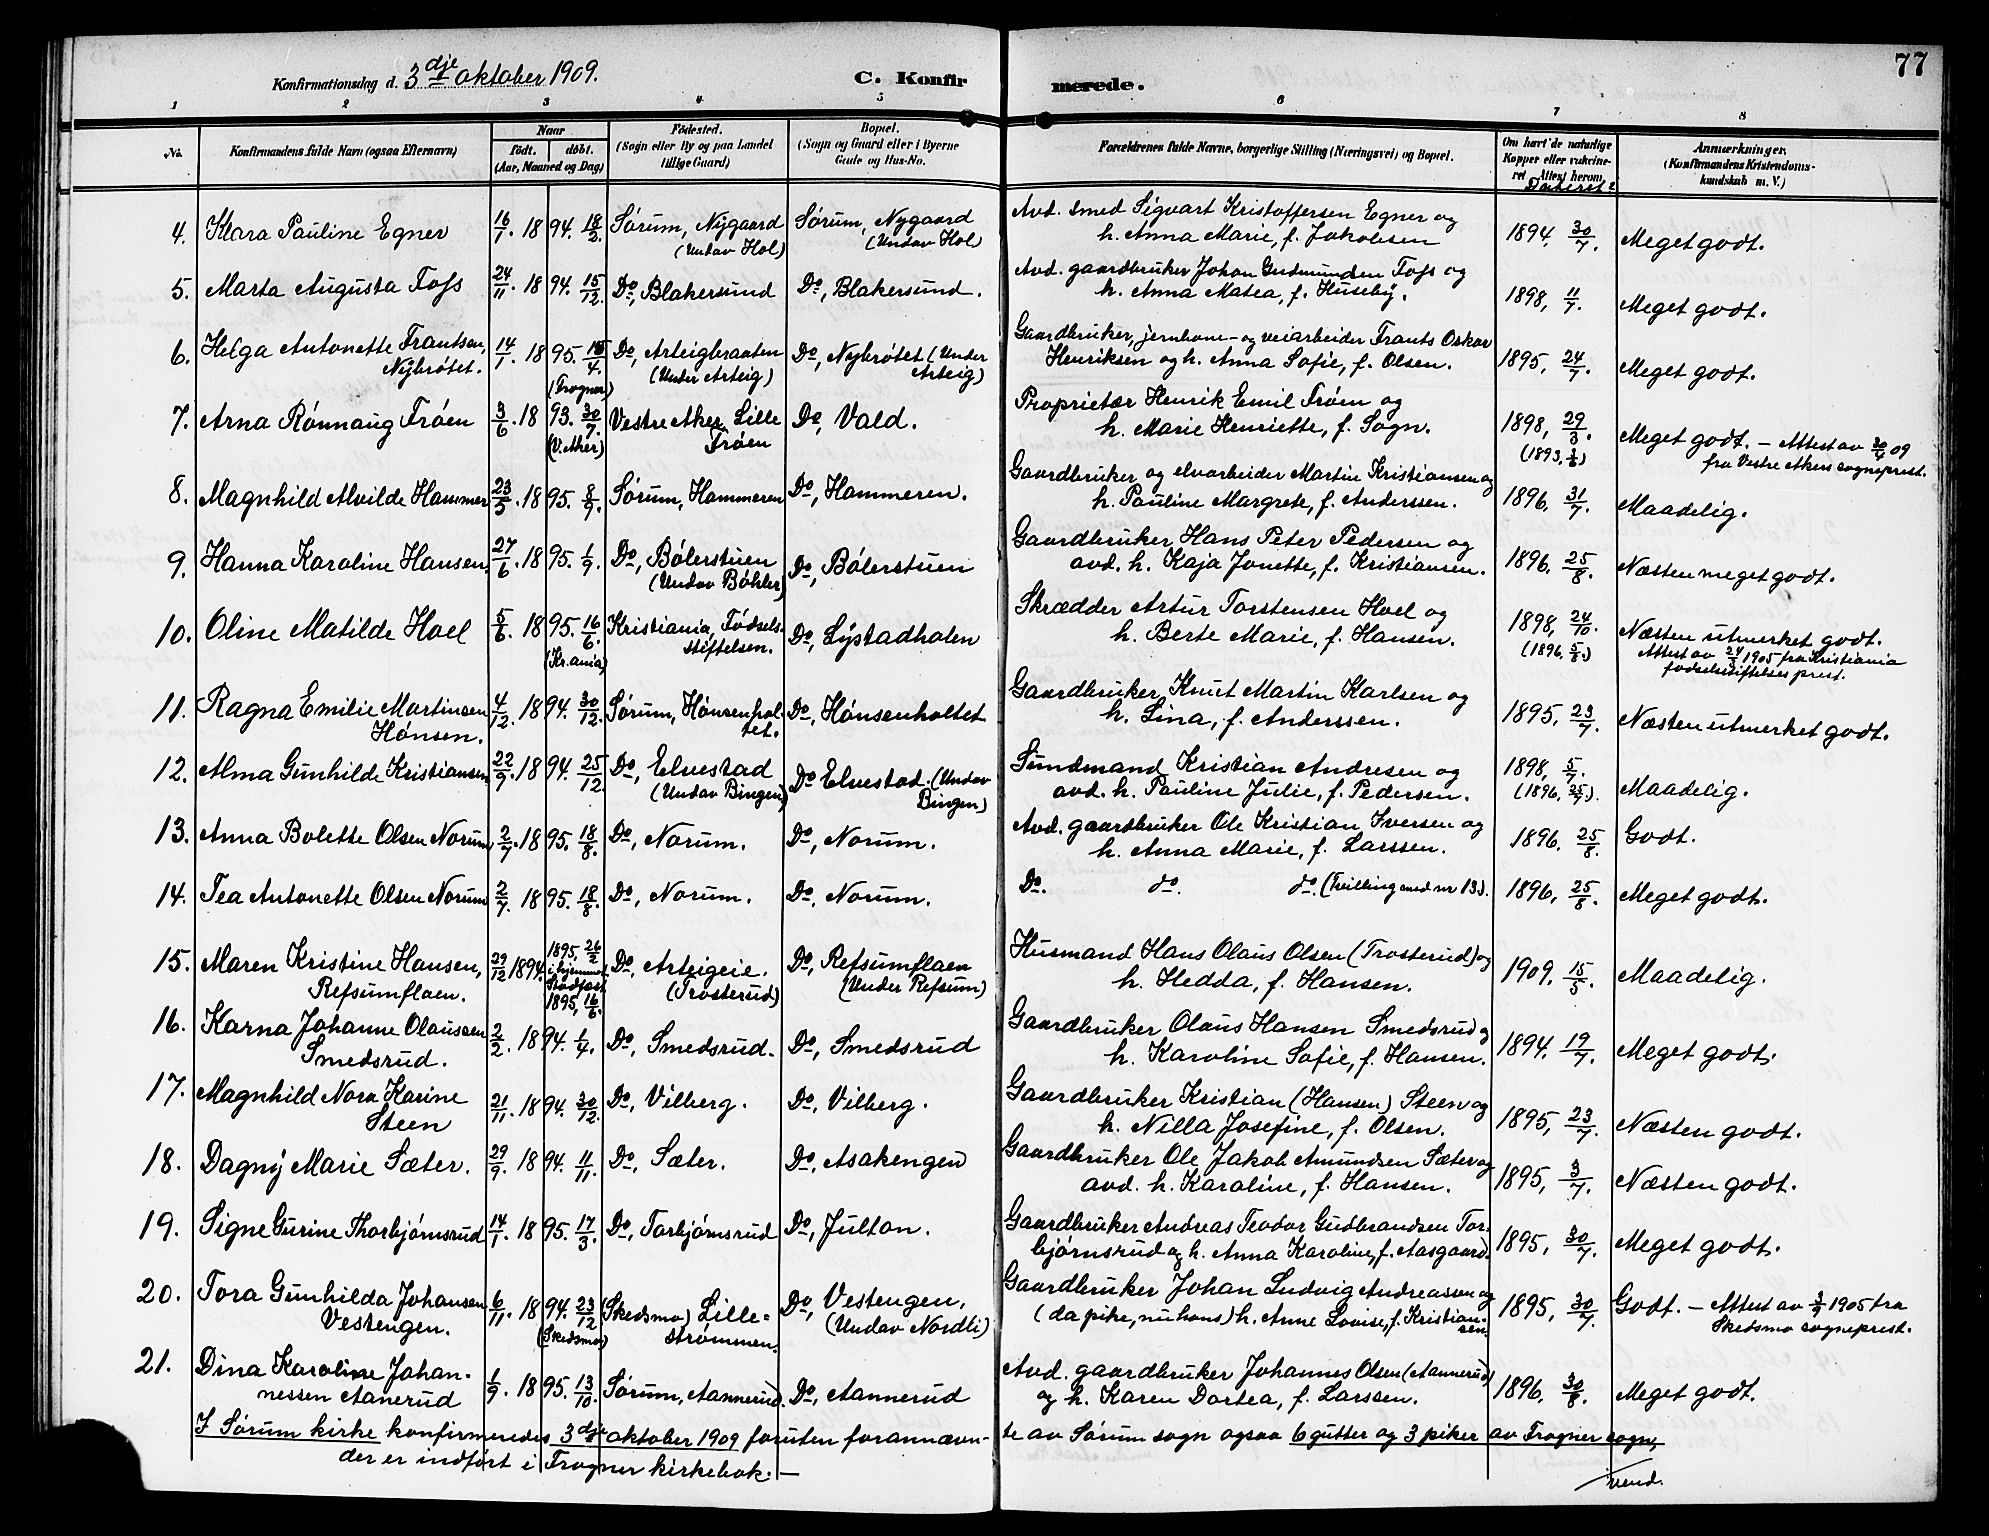 77
Konfirmationsdag d. 3dje oktober 1909. C. Konfirmerede.
1 2 3 4 5 6 7 8
No. Konfirmandens fulde Navn (ogsaa Efternavn) Naar født. døbt. (Aar, Maaned og Dag) Fødested. (Sogn eller By og paa Landet tillige Gaard) Bopæl. (Sogn og Gaard eller i Byerne Gade og Hus-No. Forældrenes fulde Navne, borgerlige Stilling (Næringsvei) og Bopæl. Om havt de naturlige Kopper eller vaccineret. Attest herom, Anmærkninger. (Konfirmandens Kristendomskundskab m. V.)
4. Klara Pauline Egner 16/1. 1894. 18/2. Sørum, Nygaard Sørum, Nygaard Avd. smed Sigvart Kristoffersen Egner og
(Undav Hol) (Undav Hol) h. Anna Marie, f. Jakobsen 1894, 30/7. Meget godt.
5. Marta Augusta Foss 24/11. 1894. 15/12. Do, Blakersund Do, Blakersund. Avd. gaardbruker Johan Gudmundsen Foss og
h. Anna Matea, f. Huseby. 1898, 11/7. Meget godt.
6. Helga Antonette Frantsen, 14/1. 1895. 15/4. Do, Arteigbraaten Do, Nybrøtet (Under Gaardbruker, jernbane- og veiarbeider Frants Oskar
Nybrøtet. (Frogner) (Under Arteig) Arteig) Henriksen og h. Anna Sofie, f. Olsen. 1895, 24/7. Meget godt.
7. Arna Rønnaug Frøen 3/6. 1893. 30/7. Vestre Aker, Lille Do, Vald. Proprietær Henrik Emil Frøen og
(V. Aker) Frøen h. Marie Henriette, f. Sogn. 1898, 29/3. Meget godt. – Attest av 30/4 09
(1893, 3/6) fra Vestre Akers sogneprest.
8. Magnhild Alvilde Hammer 23/5. 1895. 8/9. Sørum, Hammeren Do, Hammeren. Gaardbruker og elvarbeider Martin Kristiansen og
h. Pauline Margrete, f. Anderssen. 1896, 31/7. Maadelig.
9. Hanna Karoline Hansen 27/6. 1895. 1/9. Do, Bølerstuen Do, Bølerstuen Gaardbruker Hans Peter Pedersen og
(Undav Bøhler) avd. h. Kaja Jonette, f. Kristiansen. 1896. 25/8. Næsten meget godt.
10. Oline Matilde Hoel 5/6. 1895. 16/6. Kristiania, Fødsels- Do, Lystadholen Skrædder Artur Torstensen Hoel og
(Kr.ania) stiftelsen. h. Berte Marie, f. Hansen. 1898, 24/10. Næsten utmerket godt.
(1896, 5/8.) Attest av 24/3 1905 fra Kristiania
fødselsstiftelses prest.
11. Ragna Emilie Martinsen 4/12. 1894. 30/12. Sørum, Hønsenhol- Do, Hønsenholtet Gaardbruker Knut Martin Karlsen og
Hønsen. tet. h. Lina, f. Anderssen. 1895, 23/7. Næsten utmerket godt.
12. Alma Gunhilde Kristiansen 22/9. 1894. 25/12. Do, Elvestad Do Elvestad. (Undav Sundmand Kristian Andresen og 1898, 5/7.
(Undav Bingen) Bingen) avd. h. Pauline Julie, f. Pedersen. (1896, 25/7). Maadelig.
13. Anna Bolette Olsen Norum 2/7. 1895. 18/8. Do, Norum. Do, Norum. Avd. gaardbruker Ole Kristian Iversen og
h. Anna Marie, f. Larssen. 1896. 25/8. Godt.
14. Tea Antonette Olsen Norum 2/7. 1895. 18/8. Do, Norum. Do, Norum. Do. do. do. (Tvilling med nr 13). 1896, 25/8. Meget godt.
15. Maren Kristine Hansen, 29/12 1894. 1895, 26/2 i hjemmet Stadfæst 1895, 16/6. Do, Arteigeie. Do, Refsumflaen Husmand Hans Olaus Olsen (Trosterud) og
Refsumflaen. (Trosterud) (Under Refsum) h. Hedda, f. Hansen. 1909. 15/5. Maadelig.
16. Karna Johanne Olaussen 2/2. 1894. 1/4. Do, Smedsrud. Do, Smedsrud Gaardbruker Olaus Hansen Smedsrud og
Smedsrud. h. Karoline Sofie, f. Hansen. 1894. 19/7. Meget godt.
17. Magnhild Nora Karine 21/11. 1894. 30/12. Do, Vilberg. Do, Vilberg. Gaardbruker Kristian (Hansen) Steen og
Steen h. Nilla Josefine, f. Olsen. 1895, 23/7. Næsten godt.
18. Dagny Marie Sæter. 29/9. 1894. 11/11. Do, Sæter. Do, Asakengen Gaardbruker Ole Jakob Amundsen Sæter og
avd. h. Karoline, f. Hansen. 1895, 3/7. Næsten godt.
19. Signe Gurine Thorbjørnsrud 14/1. 1895. 17/3. Do, Torbjørnsrud Do, Julton. Gaardbruker Andreas Teodor Gudbrandsen Tor-
bjørnsrud og h. Anna Karoline, f. Aasgaard. 1895, 30/7. Meget godt.
20. Tora Gunhilda Johansen 6/11. 1894. 23/12 (Skedsmo) Lille- Do, Vestengen, Gaardbruker Johan Ludvig Andreassen og
Vestengen. (Skedsmo) strømmen. (Undav Nordli) (da pike, nu hans) h. Anne Lovise, f. Kristian- 1895, 30/7. Godt. – Attest av 3/9 1905 fra
sen Skedsmo sogneprest.
21. Dina Karoline Johan- 1/9. 1895. 13/10. Sørum, Aannerud. Do, Aannerud Avd. gaardbruker Johannes Olsen (Aannerud)
nessen Aanerud og h. Karen Dortea, f. Larssen. 1896, 30/8. Meget godt.
I Sørum kirke konfirmeredes 3dje oktober 1909 foruten forannævn- te av Sørum sogn ogsaa 6 gutter og 3 piker av Frogner sogn,
der er indført i Frogner kirkebok. –
vend.